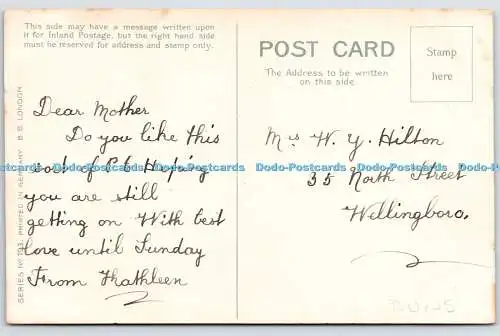 This side may have a message written upon
it for Inland Postage, but the right hand side
must be reserved for address and stamp only.
POST CARD
The Address to be written
on this side.
Stamp
here
SERIES No. PRINTED IN GERMANY B.B. LONDON
Dear Mother
Do you like this
sort of P.C. Hoping
you are still
getting on With best
love until Sunday
From Kathleen
Mrs W. Y. Hilton
35 North Street
Wellingboro.
Dodo-Postcards Dodo-Postcards Dodo-Postcards Dodo-Postcards Dodo-Postcards